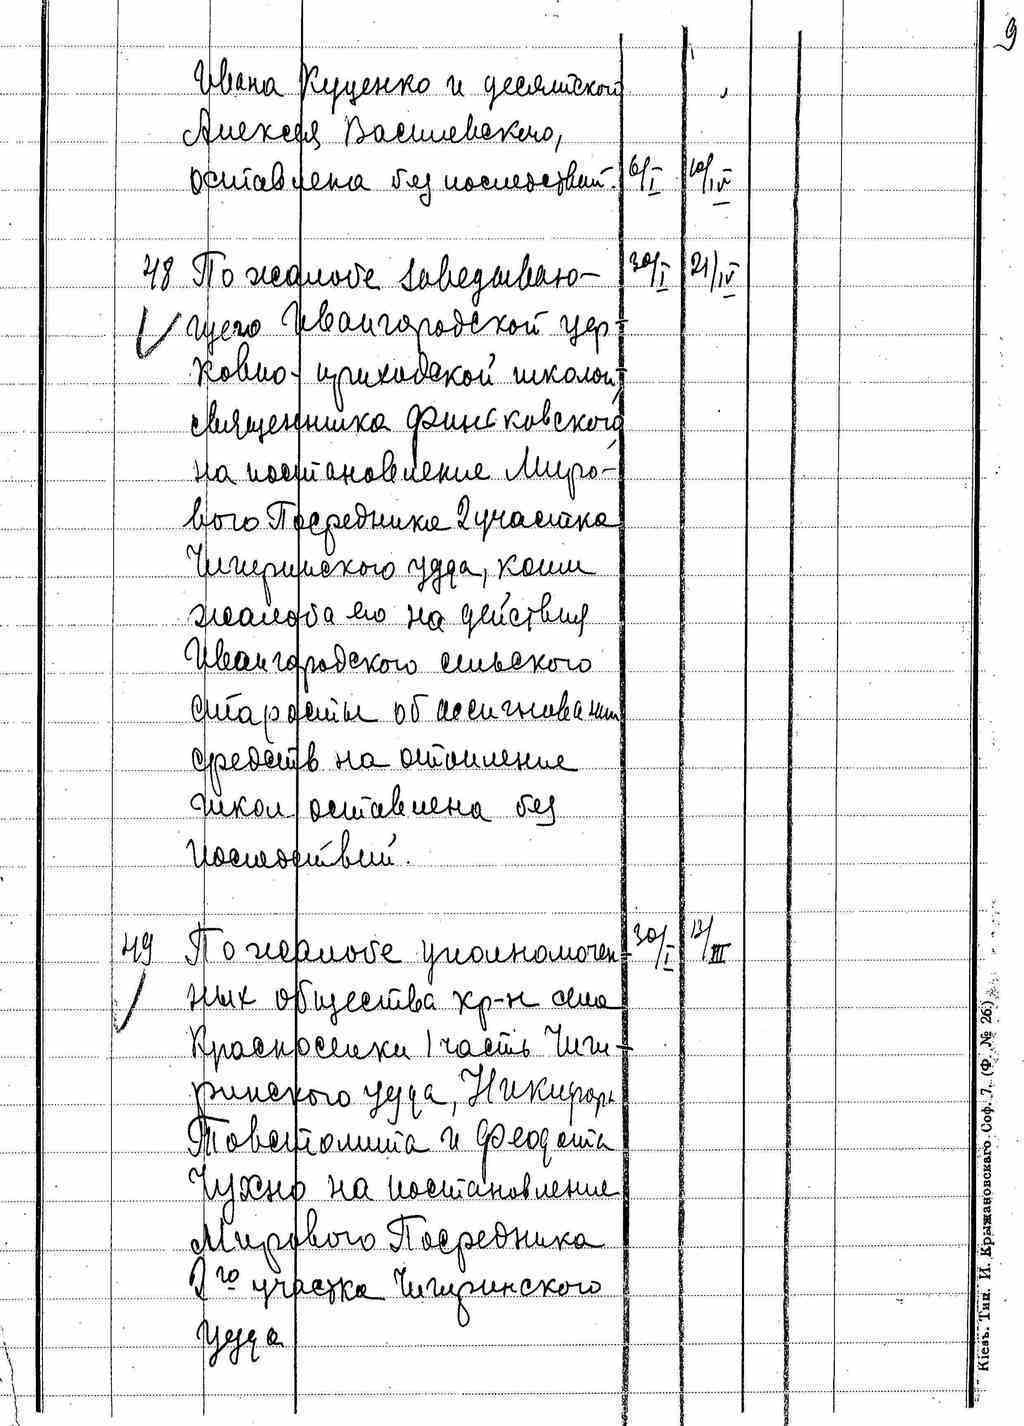 9
Ивана Куценко и десятского
Алексея Василевского,
оставлена без последствий. 6/I 10/IV
48 По жалобе Заведываю- 30/I 21/IV
щего Ивангородской цер-
ковно-приходской школой,
священника Финьковского
на постановление Миро-
вого Посредника 2 участка
Чигиринского уезда, коим
жалоба его на действия
Ивангородского сельского
старосты об ассигновании
средств на отопление
школ оставлена без
последствий.
49 По жалобе уполномочен- 30/I 12/III
ных общества кр-н села
Красноселки 1 часть Чиги-
ринского уезда, Никифора
Товстолита и Феодота
Чухно на постановление
Мирового Посредника
2го участка Чигиринского
уезда
Кіевъ. Тип. И. Крыжановскаго. Соф. 7. (Ф. № 26)